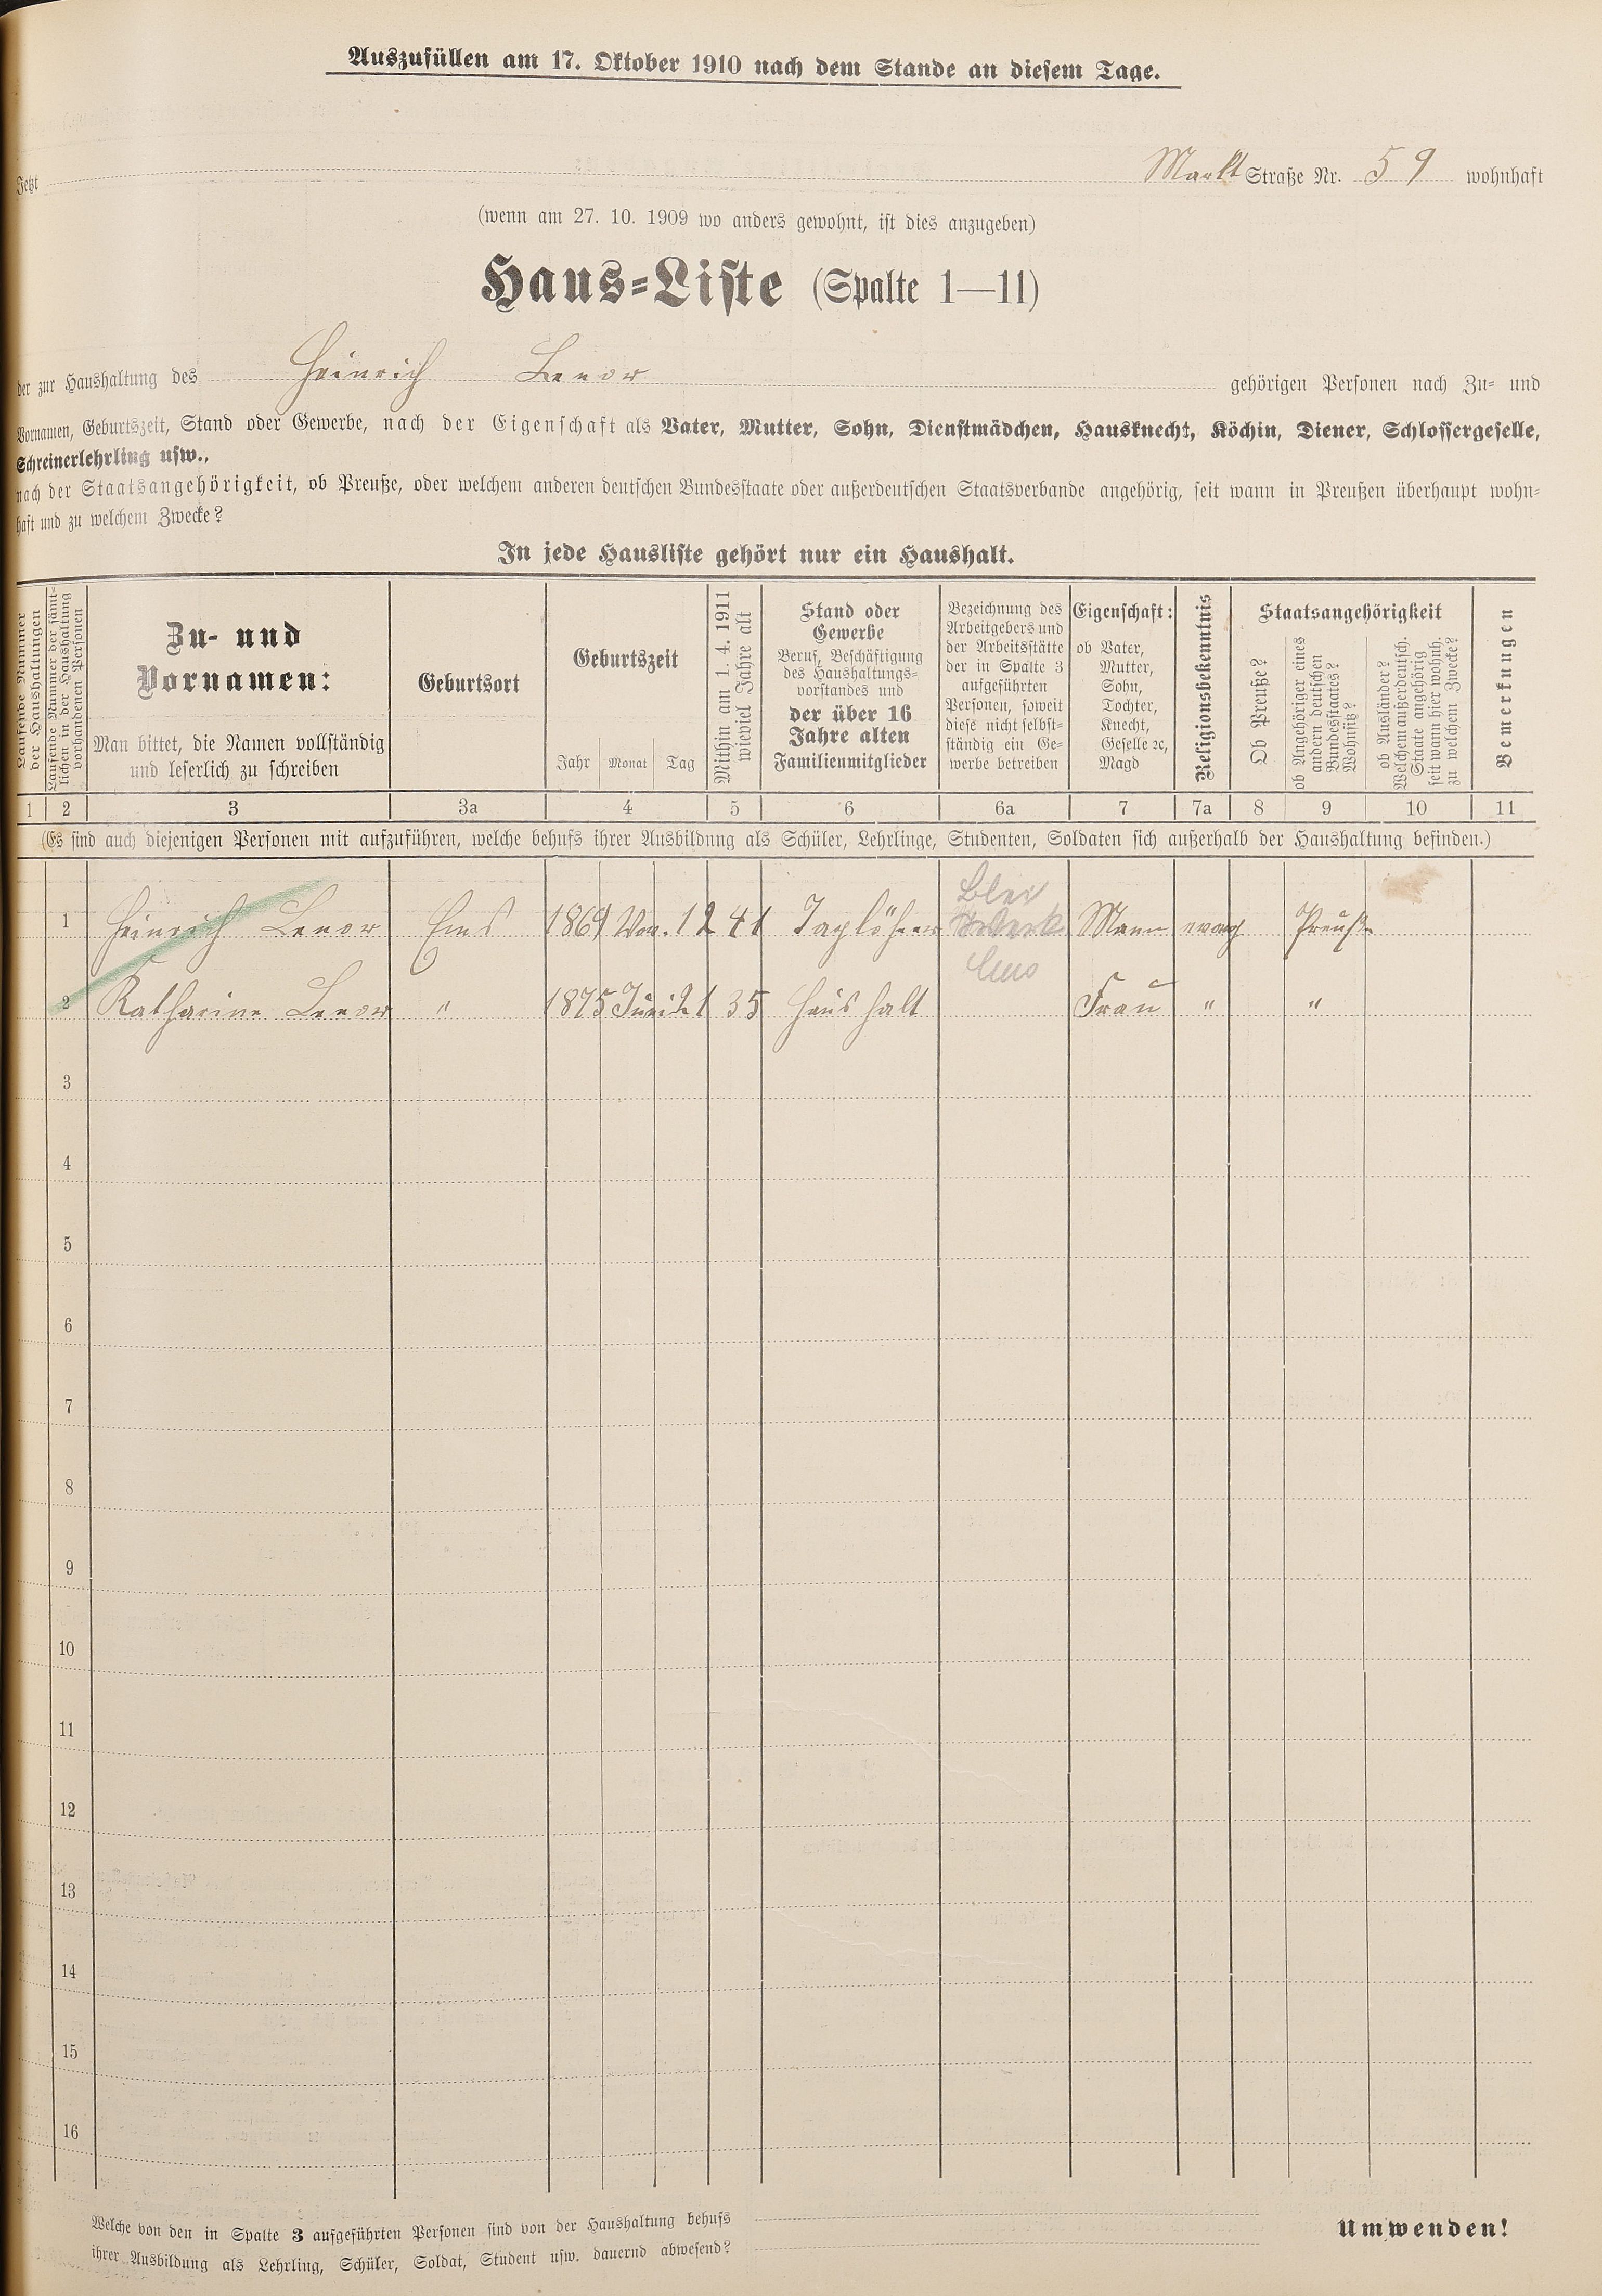 Auszufüllen am 17. Oktober 1910 nach dem Stande an diesem Tage.
Jetzt Markt Straße Nr. 59 wohnhaft
(wenn am 27. 10. 1909 wo anders gewohnt, ist dies anzugeben)
Haus-Liste (Spalte 1—11)
der zur Haushaltung des Heinrich Lenor gehörigen Personen nach Zu- und
Vornamen, Geburtszeit, Stand oder Gewerbe, nach der Eigenschaft als Vater, Mutter, Sohn, Dienstmädchen, Hausknecht, Köchin, Diener, Schlossergeselle,
Schreinerlehrling usw.,
nach der Staatsangehörigkeit, ob Preuße, oder welchem anderen deutschen Bundesstaate oder außerdeutschen Staatsverbande angehörig, seit wann in Preußen überhaupt wohn-
haft und zu welchem Zwecke?
In jede Hausliste gehört nur ein Haushalt.
Laufende Nummer
der Haushaltungen
Laufende Nummer der sämt-
lichen in der Haushaltung
vorhandenen Personen
Zu- und
Vornamen:
Man bittet, die Namen vollständig
und leserlich zu schreiben
Geburtsort
Geburtszeit
Jahr Monat Tag
Mithin am 1. 4. 1911
wieviel Jahre alt
Stand oder
Gewerbe
Beruf, Beschäftigung
des Haushaltungs-
vorstandes und
der über 16
Jahre alten
Familienmitglieder
Bezeichnung des
Arbeitgebers und
der Arbeitsstätte
der in Spalte 3
aufgeführten
Personen, soweit
diese nicht selbst-
ständig ein Ge-
werbe betreiben
Eigenschaft:
ob Vater,
Mutter,
Sohn,
Tochter,
Knecht,
Geselle ꝛc,
Magd
Religionsbekenntnis
Staatsangehörigkeit
Ob Preuße?
ob Angehöriger eines
andern deutschen
Bundesstaates?
Wohnsitz?
ob Ausländer?
Welchem außerdeutsch.
Staate angehörig
seit wann hier wohnh.
zu welchem Zwecke?
Bemerkungen
1 2 3 3a 4 5 6 6a 7 7a 8 9 10 11
(Es sind auch diejenigen Personen mit aufzuführen, welche behufs ihrer Ausbildung als Schüler, Lehrlinge, Studenten, Soldaten sich außerhalb der Haushaltung befinden.)
1 Heinrich Lenor Ems 1869 Nov. 12 41 Taglöhner Blei Mann evang Preuße
Ems
2 Katharine Lenor " 1875 Juni 21 35 Haushalt Frau " "
3
4
5
6
7
8
9
10
11
12
13
14
15
16
Welche von den in Spalte 3 aufgeführten Personen sind von der Haushaltung behufs
ihrer Ausbildung als Lehrling, Schüler, Soldat, Student usw. dauernd abwesend?
Umwenden!